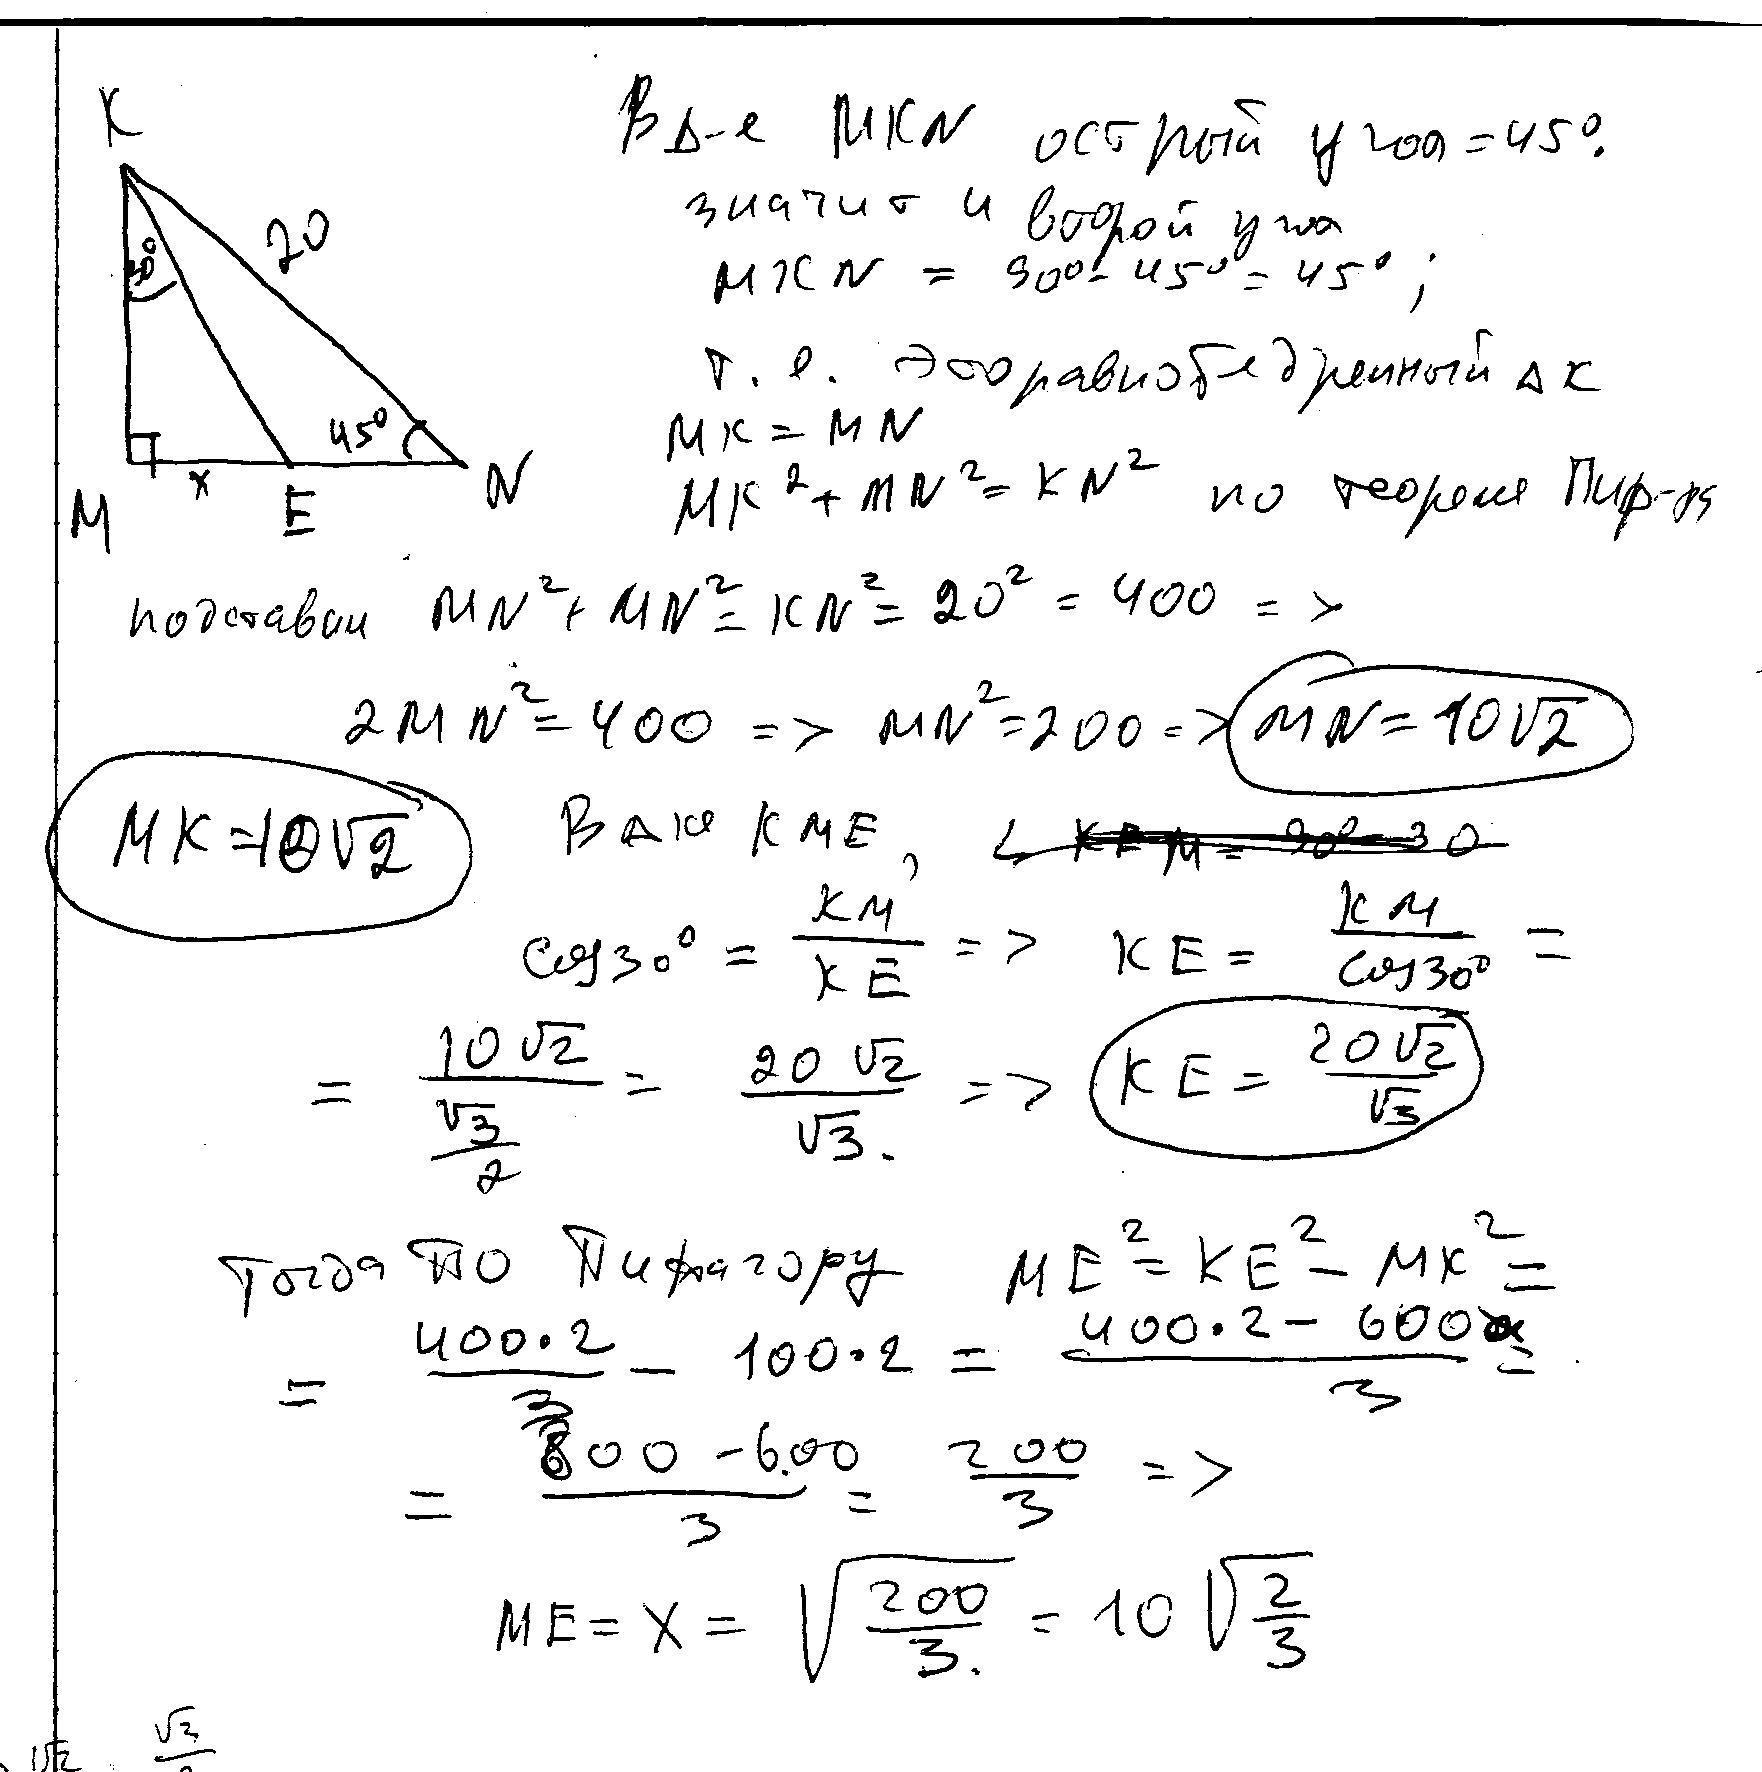 K
20
30°
45°
M x E N
В Δ-е MKN острый угол = 45°.
значит и второй угол
MKN = 90° - 45° = 45°;
т. е. это равнобедренный Δ к
MK = MN
MK² + MN² = KN² по теореме Пиф-ра
подставим MN² + MN² = KN² = 20² = 400 =>
2MN² = 400 => MN² = 200 => MN = 10√2
MK = 10√2 В Δ-ке KME, ∠ KEM = 90° - 30
cos30° = KM/KE => KE = KM/cos30° =
= 10√2/(√3/2) = 20√2/√3. => KE = 20√2/√3
Тогда по Пифагору ME² = KE² - MK² =
= 400·2/3 - 100·2 = (400·2 - 600)/3 =
= (800 - 600)/3 = 200/3 =>
ME = x = √(200/3) = 10√(2/3)
√2 √3/2